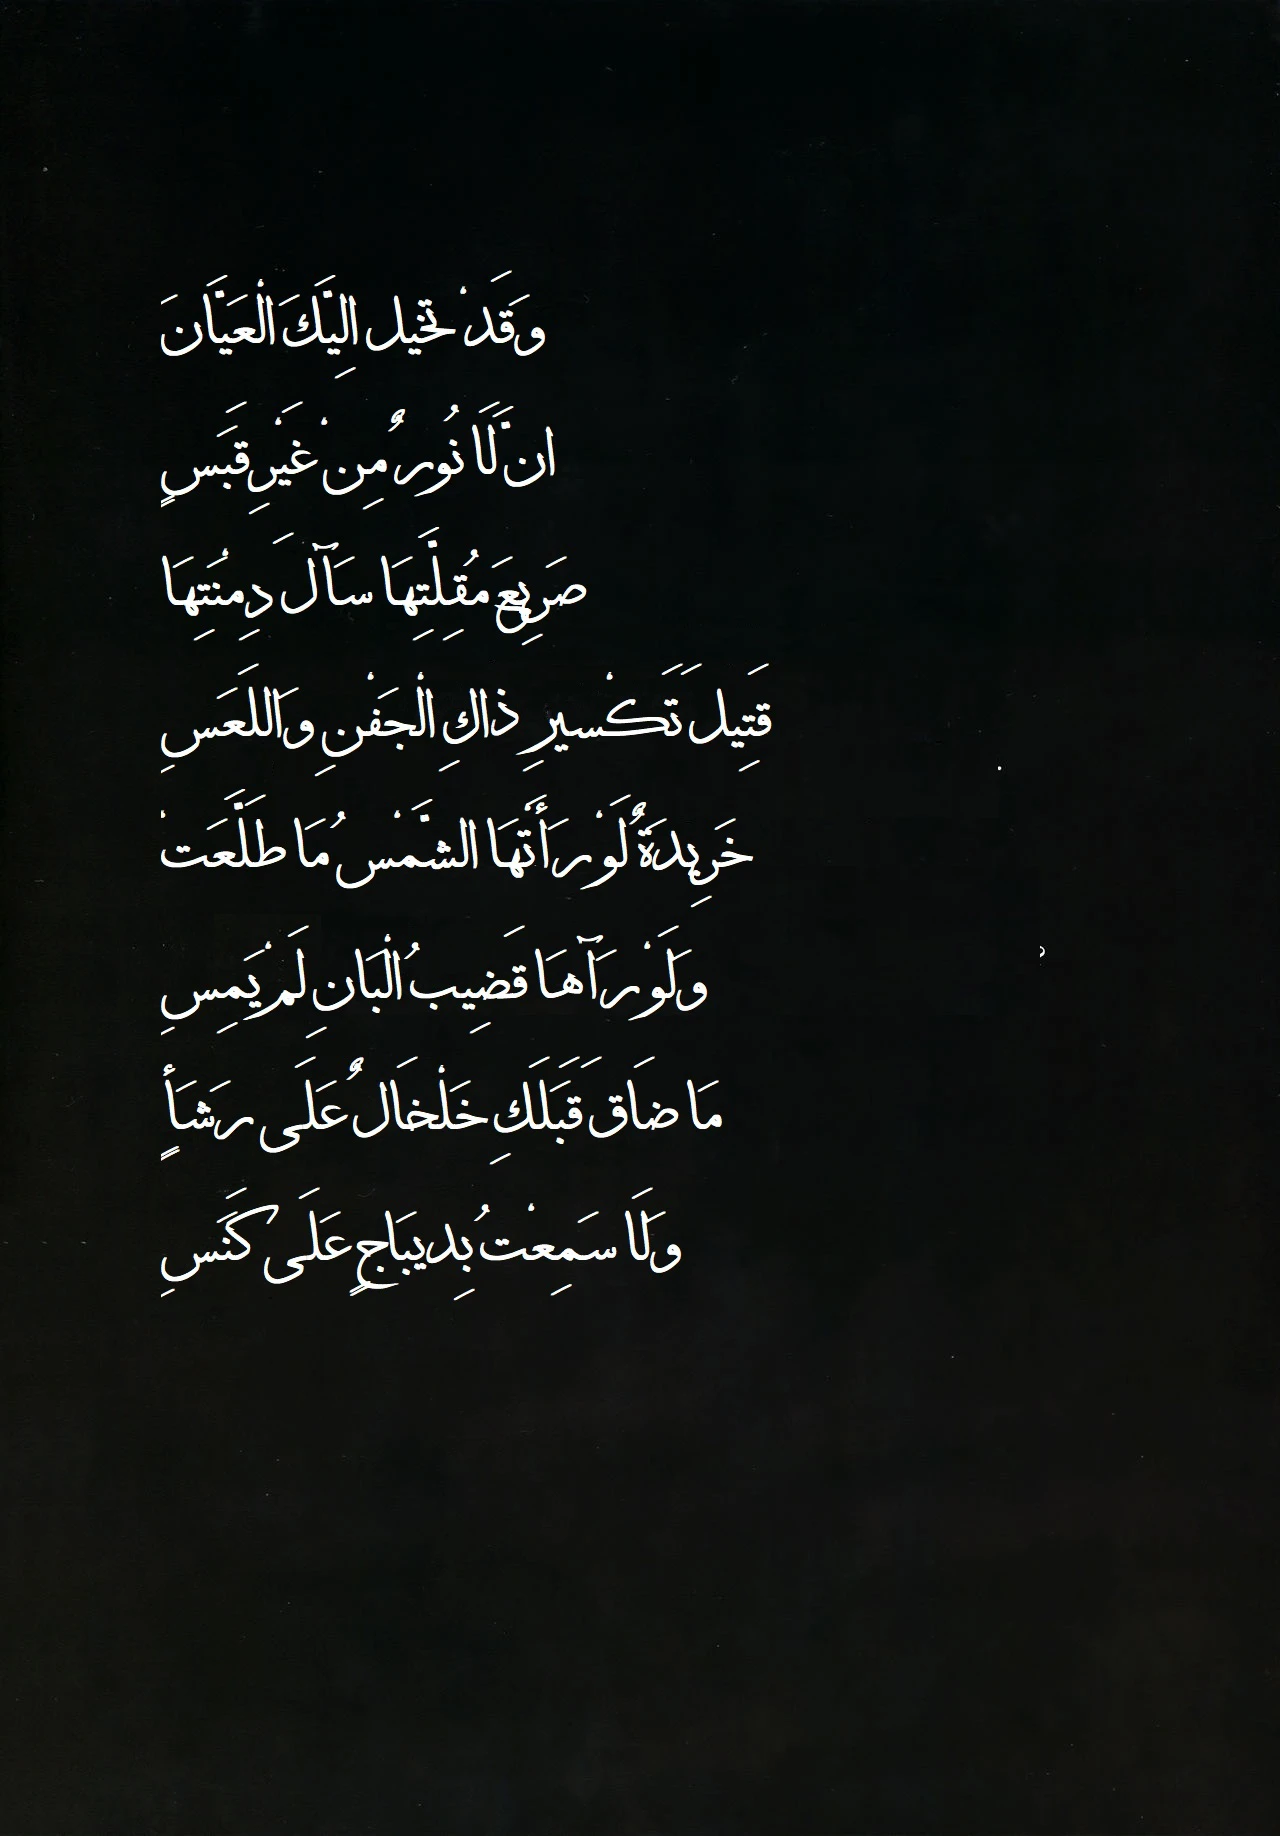 وَقَدْ تخيل اِليَّكَ الْعَيَّانَ
ان لََّا نُورٌ مِنْ غَيْرِ قَبَسٍ
صَرِيعَ مُقِلَّتِهَا سَآلَ دِمنْتِهَا
قَتِيلَ تَكْسيرِ ذاكِ الْجَفْنِ وَاللَعَسِ
خَرِيدَةٌ لَوْ رَأَتْهَا الشَّمْسُ مَا طلَّعَتْ
وَلَوْ رَآهَا قَضِيبُ الْبَانِ لَمْ يَمِسِ
مَا ضَاقَ قَبَلَكِ خَلْخَالٌ عَلَى رَشَأٍ
وَلَا سَمِعْتُ بِديبَاجٍ عَلَى كَنَسِ